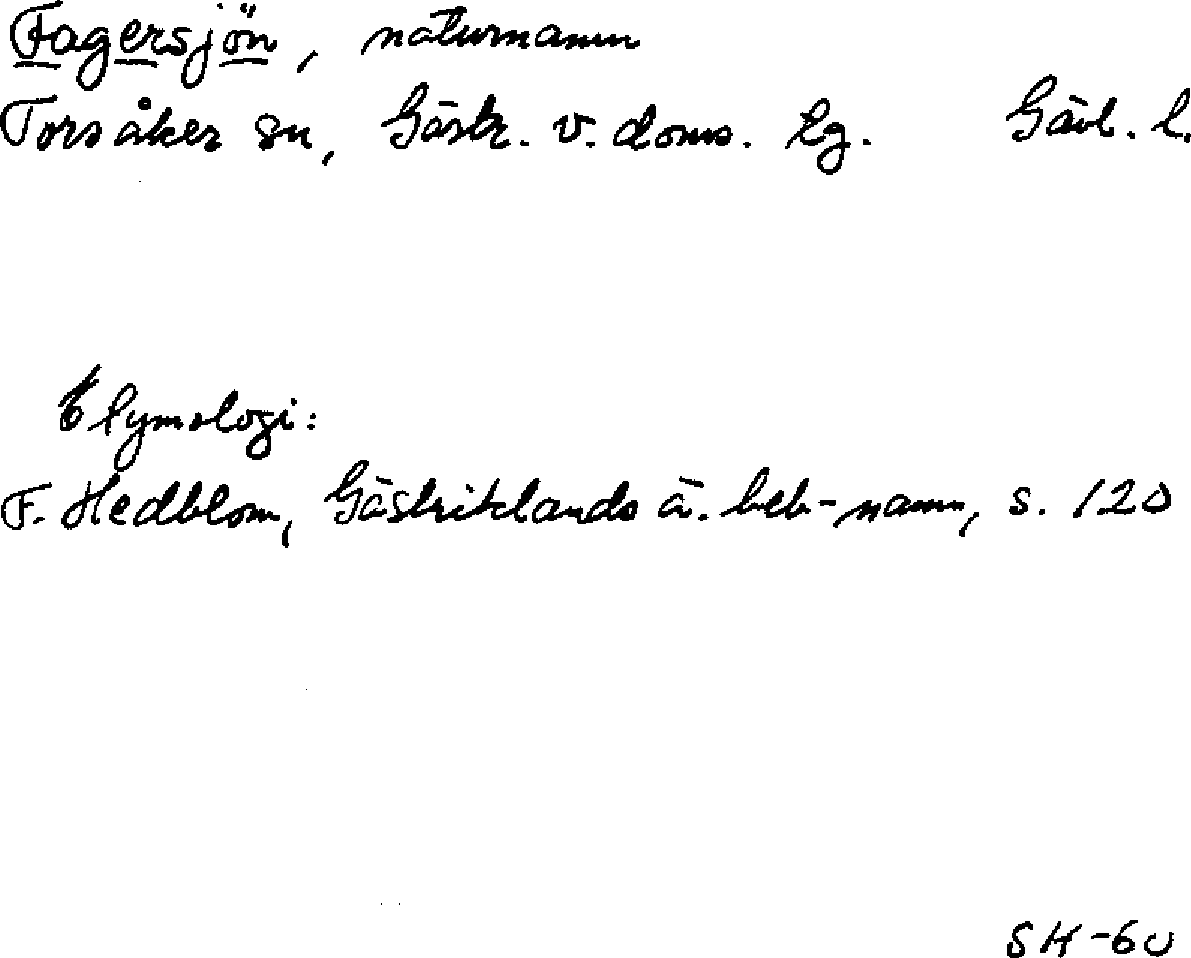 Fagersjön, naturnamn
Torsåker sn, Gästr. v. doms. lg. Gävl. l.
Etymologi:
F. Hedblom, Gästriklands ä. beb-namn, s. 120
SH-60